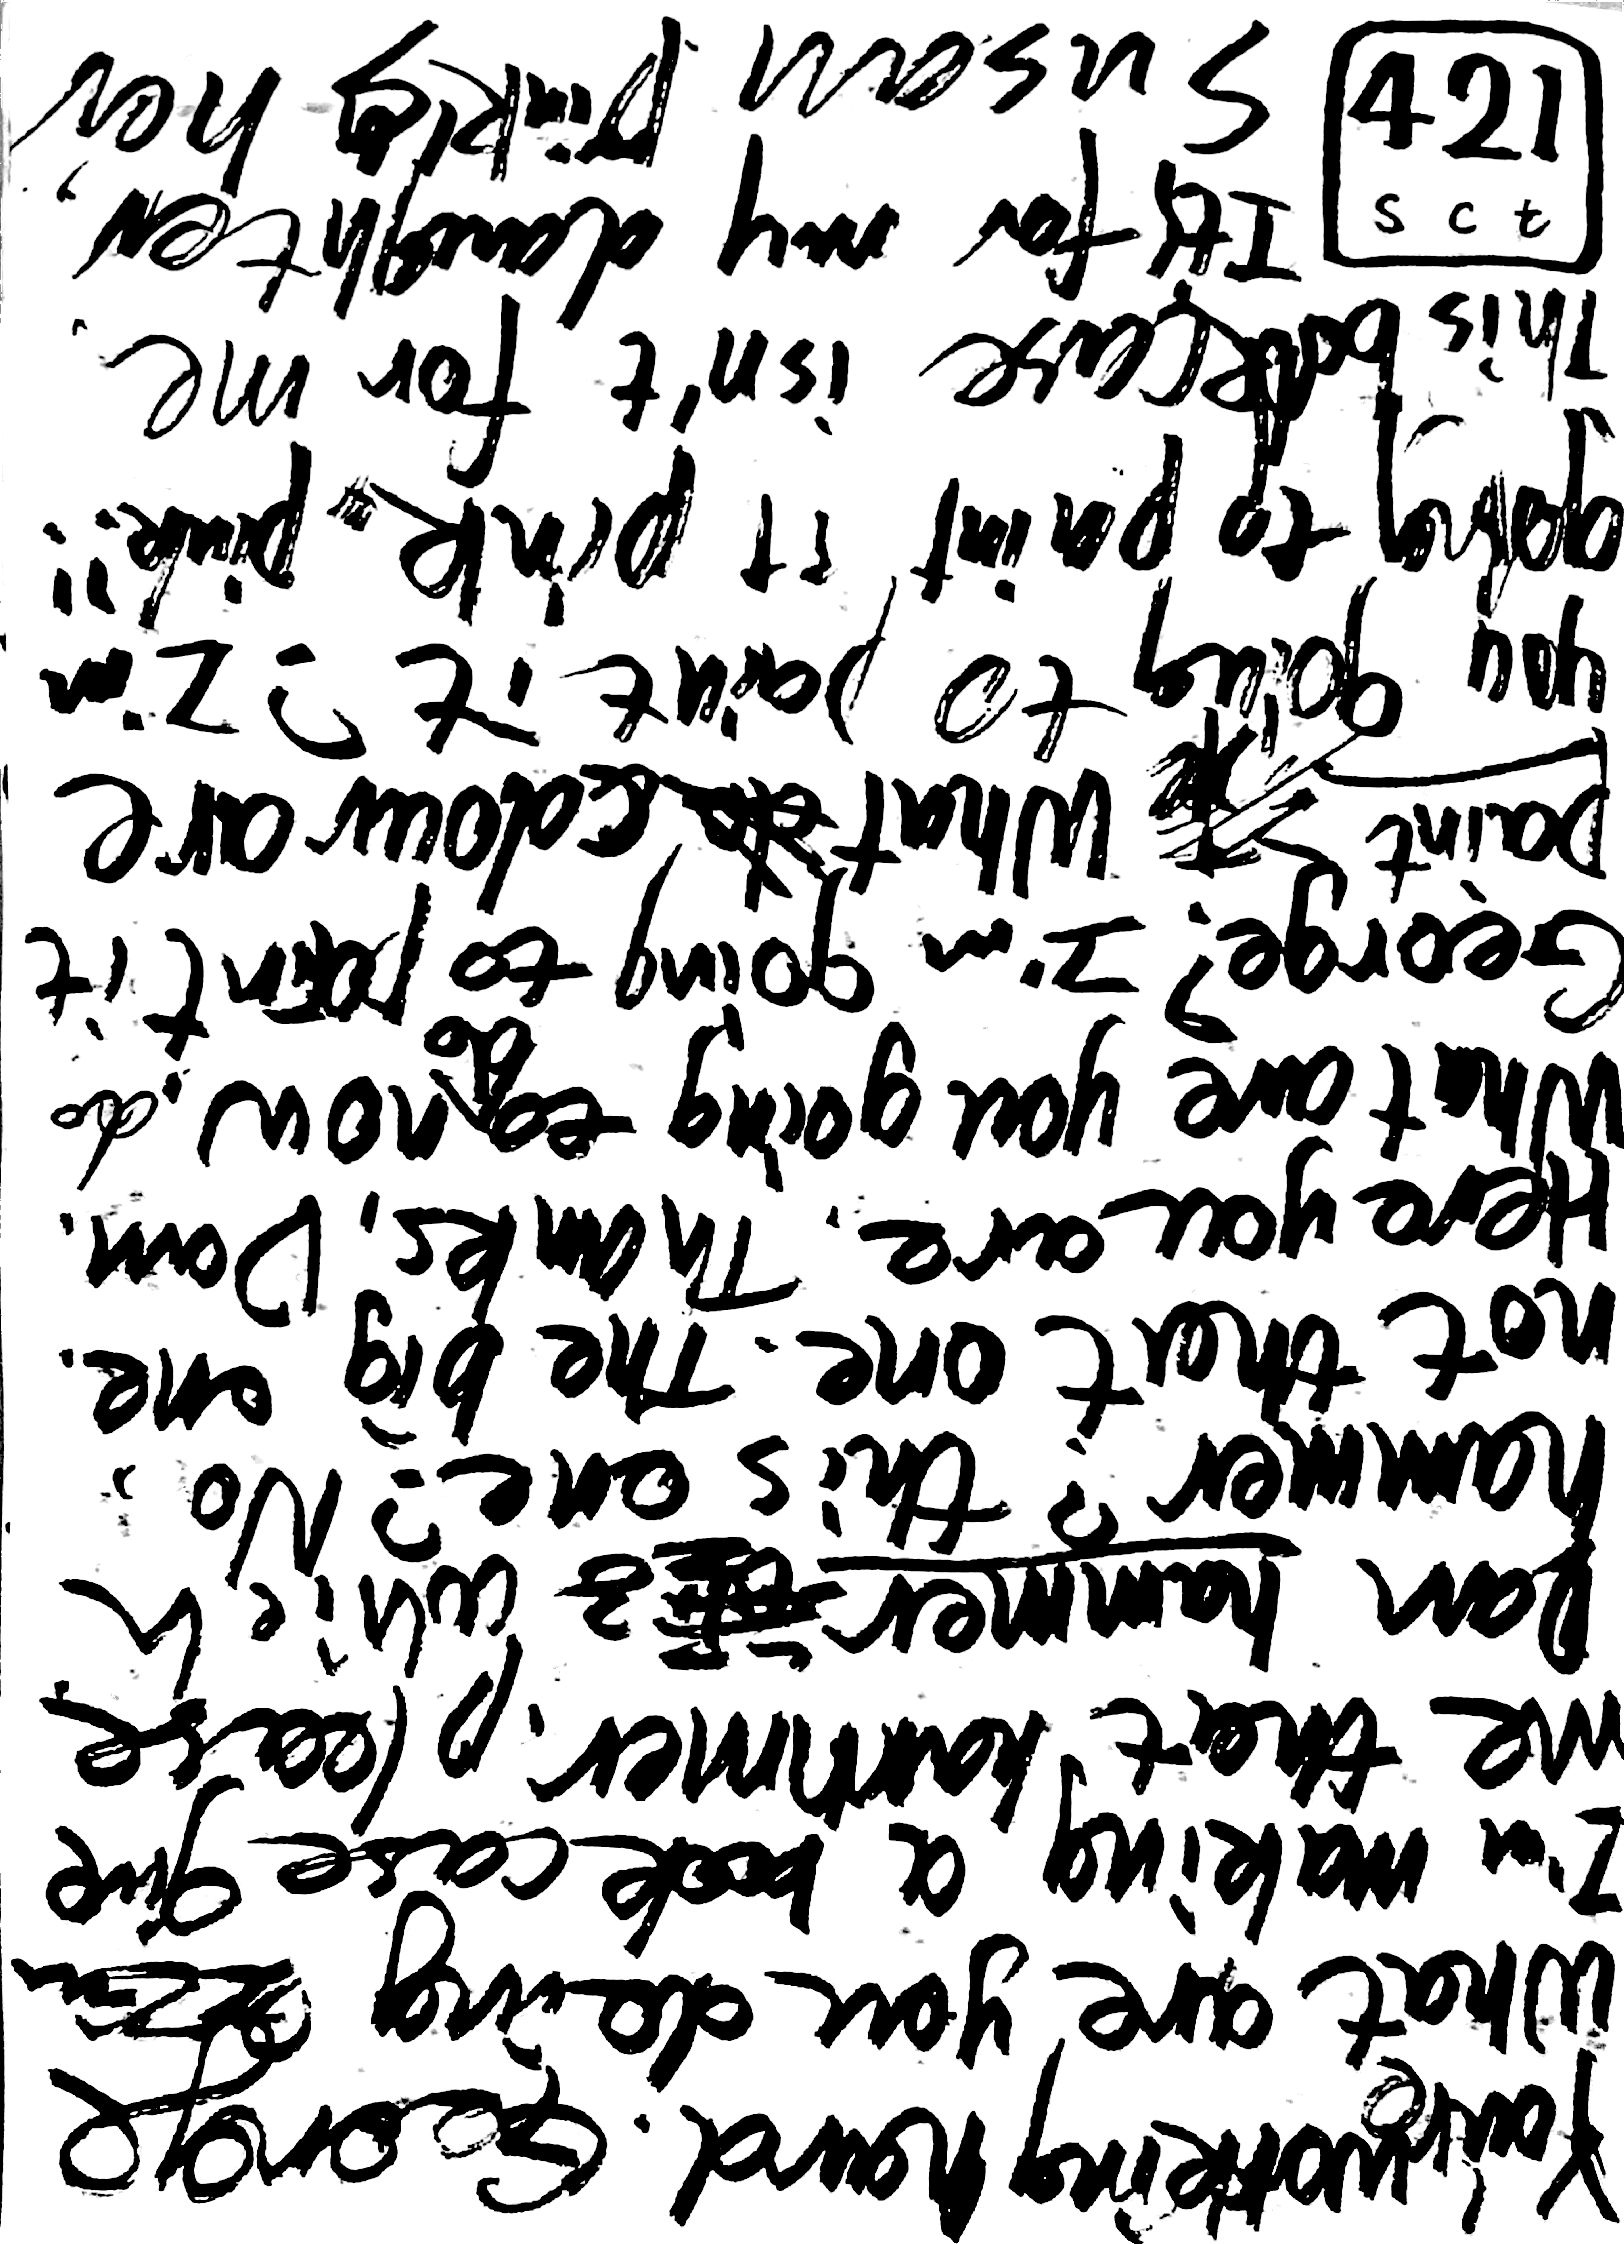 You're working hard. George
What are you doing
I'm making a book case give
me that hammer. please
hammer which
hammer? this one? No,
not that one. The big one.
Here you are. Thanks, Dan.
What are you going to do now, do
George? I'm going to paint it
Paint What colour are
you going to paint it? I'm
going to paint it pink. pink!!
This bookcase isn't for me.
It's for my daughter,
Susan pink is her
421
Sct